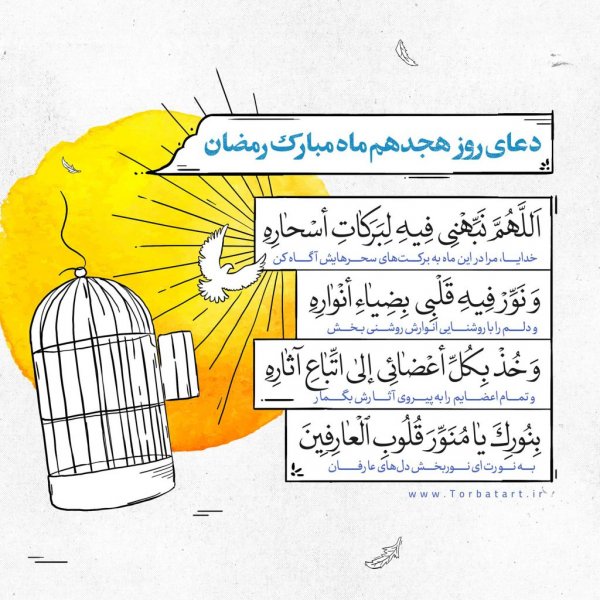 دعای روز هجدهم ماه مبارک رمضان
اَللَّهُمَّ نَبِّهْنِی فِیهِ لِبَرَکَاتِ أَسْحَارِهِ
خدایا، مرا در این ماه به برکت‌های سحرهایش آگاه کن
وَ نَوِّرْ فِیهِ قَلْبِی بِضِیَاءِ أَنْوَارِهِ
و دلم را با روشنایی انوارش روشنی بخش
وَ خُذْ بِکُلِّ أَعْضَائِی إِلَى اتِّبَاعِ آثَارِهِ
و تمام اعضایم را به پیروی آثارش بگمار
بِنُورِكَ يا مُنَوِّرَ قُلُوبِ الْعارِفِينَ
به نورت ای نوربخش دل‌های عارفان
www.Torbatart.ir